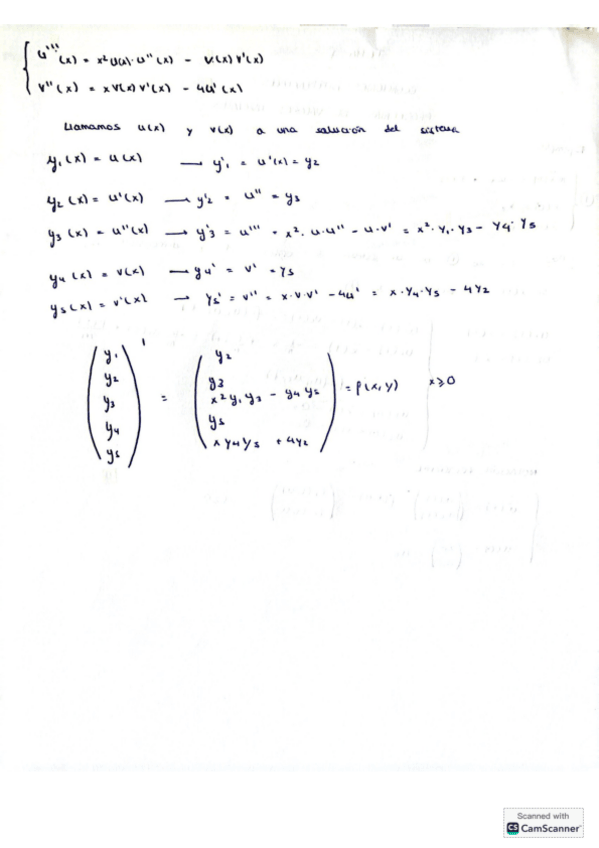 u'''(x) = x² u(x)· u''(x) - v(x) v'(x)
v''(x) = x v(x) v'(x) - 4u'(x)
Llamamos u(x) y v(x) a una solución del sistema
y₁(x) = u(x) → y'₁ = u'(x) = y₂
y₂(x) = u'(x) → y'₂ = u'' = y₃
y₃(x) = u''(x) → y'₃ = u''' = x²· u·u'' - u·v' = x²· y₁·y₃ - y₄· y₅
y₄(x) = v(x) → y₄' = v' = y₅
y₅(x) = v'(x) → y₅' = v'' = x·v·v' - 4u' = x·y₄·y₅ - 4y₂
(y₁ y₂ y₃ y₄ y₅)' = (y₂
y₃
x² y₁ y₃ - y₄ y₅
y₅
x y₄ y₅ + 4y₂) = f(x,y) x⩾0
Scanned with
CS CamScanner